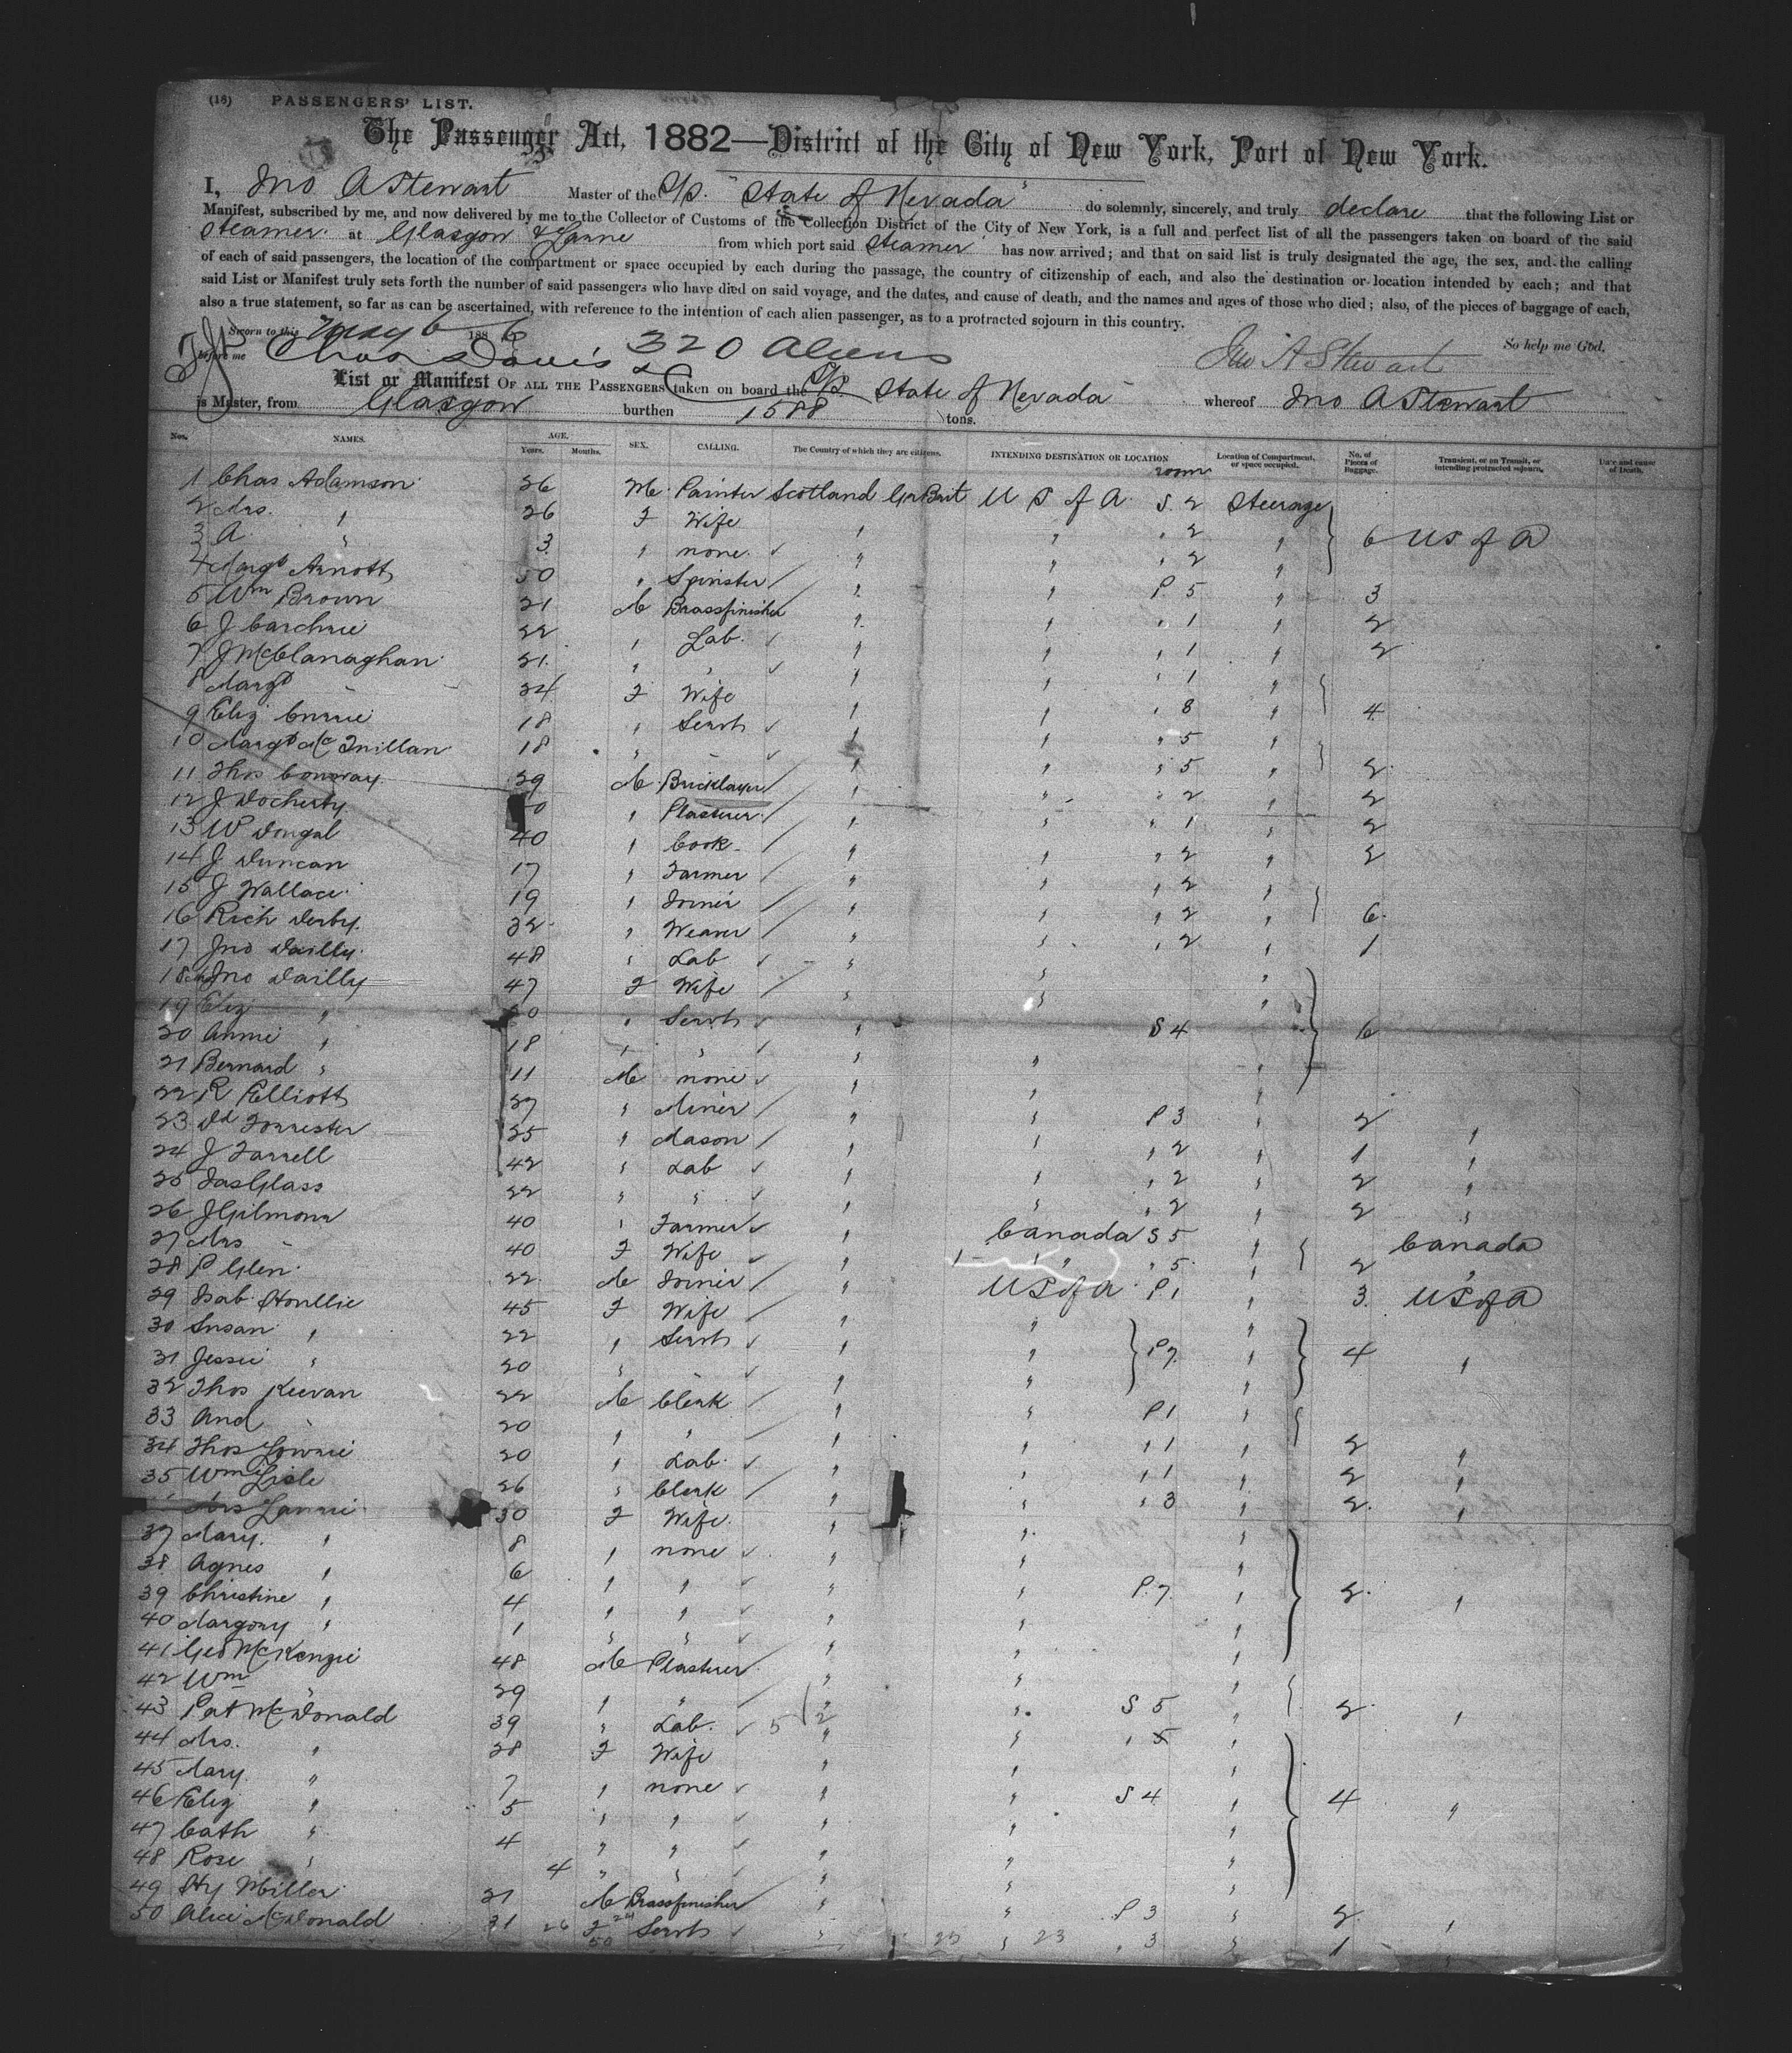 (16) PASSENGERS' LIST.
The Passenger Act, 1882—District of the City of New York, Port of New York.
I, Jno A Stewart Master of the S/S. "State of Nevada" do solemnly, sincerely, and truly declare that the following List or
Manifest, subscribed by me, and now delivered by me to the Collector of Customs of the Collection District of the City of New York, is a full and perfect list of all the passengers taken on board of the said
Steamer at Glasgow & Larne from which port said Steamer has now arrived; and that on said list is truly designated the age, the sex, and the calling
of each of said passengers, the location of the compartment or space occupied by each during the passage, the country of citizenship of each, and also the destination or location intended by each; and that
said List or Manifest truly sets forth the number of said passengers who have died on said voyage, and the dates, and cause of death, and the names and ages of those who died; also, of the pieces of baggage of each,
also a true statement, so far as can be ascertained, with reference to the intention of each alien passenger, as to a protracted sojourn in this country.
Sworn to this May 6 1886 So help me God,
before me Chas Davis 320 Aliens Jno A Stewart
List or Manifest OF ALL THE PASSENGERS taken on board the S/S. State of Nevada whereof Jno A Stewart
is Master, from Glasgow burthen 1588 tons.
Nos. NAMES. AGE. Years. Months. SEX. CALLING. The Country of which they are citizens. INTENDING DESTINATION OR LOCATION room Location of Compartment, or space occupied. No. of Pieces of Baggage. Transient, or on Transit, or intending protracted sojourn. Date and cause of Death.
1 Chas Adamson 26 M. Painter Scotland Gr Brit U S of A S. 2 Steerage
2 Mrs. " 26 F Wife " " " 2 "
3 A " 3 " none " " " 2 " 6 US of A
4 Margt Arnott 50 " Spinster " " P 5 " 3
5 Wm Brown 21 M Brassfinisher " " " 1 " 2
6 J Carchrie 22 " Lab. " " " 1 " 2
7 J McClanaghan 21 " " " " " 1 "
8 Margt " 24 F Wife " " " 8 " 4
9 Eliz Currie 18 " Servt " " " 5 "
10 Margt McQuillan 18 " " " " " 5 " 2
11 Thos Conway 29 M Bricklayer " " " 2 " 2
12 J Docherty 0 " Plasterer " " " 1 " 2
13 W Dougal 40 " Cook " " " 2 " 2
14 J Duncan 17 " Farmer " " " 2 "
15 J Wallace 19 " Joiner " " " 2 " 6
16 Rich Derby 32 " Weaver " " " 2 " 1
17 Jno Dailly 48 " Lab " " "
18 Jno Dailly 47 F Wife " " "
19 Eliz " 20 " Servt " S 4 6
20 Annie " 18 " " " " "
21 Bernard " 11 M none " " "
22 R Elliott 27 " Miner " " P 3 " 2 "
23 Dd Forrester 25 " Mason " " " 2 " 1 "
24 J Farrell 42 " Lab " " " 2 " 2 "
25 Jas Glass 22 " " " " " 2 " 2 "
26 J Gilmour 40 " Farmer " Canada S 5 " Canada
27 Mrs " 40 F Wife " " " 5 " 2 "
28 P Glen 22 M Joiner " US of A P 1 " 3 US of A
29 Isab. Houllie 45 F Wife " " "
30 Susan " 22 " Servt " " P 7 " 4 "
31 Jessie " 20 " " " " "
32 Thos Keevan 22 M Clerk " " P 1 "
33 And " 20 " " " " " 1 " 2 "
34 Thos Lowrie 20 " Lab. " " " 1 " 2 "
35 Wm Lisle 26 " Clerk " " " 3 " 2 "
Mrs Lawrie 30 F Wife " " "
37 Mary " 8 " none " " "
38 Agnes " 6 " " " " P. 7 " 2 "
39 Christine " 4 " " " " "
40 Margory " 1 " " " " "
41 Geo McKenzie 48 M Plasterer " " "
42 Wm " 29 " " " " S 5 " 2 "
43 Pat McDonald 39 " Lab. 5 2 " " " 5 "
44 Mrs. " 28 F Wife " " "
45 Mary " 7 " none " " S 4 " 4 "
46 Eliz " 5 " " " " "
47 Cath " 4 " " " " "
48 Rose " 4 " " " " "
49 Hy Miller 21 M Brassfinisher " " P 3 " 2 "
50 Alice McDonald 31 26 F 24 Servt " 23 " 23 " 3 " 1 "
50